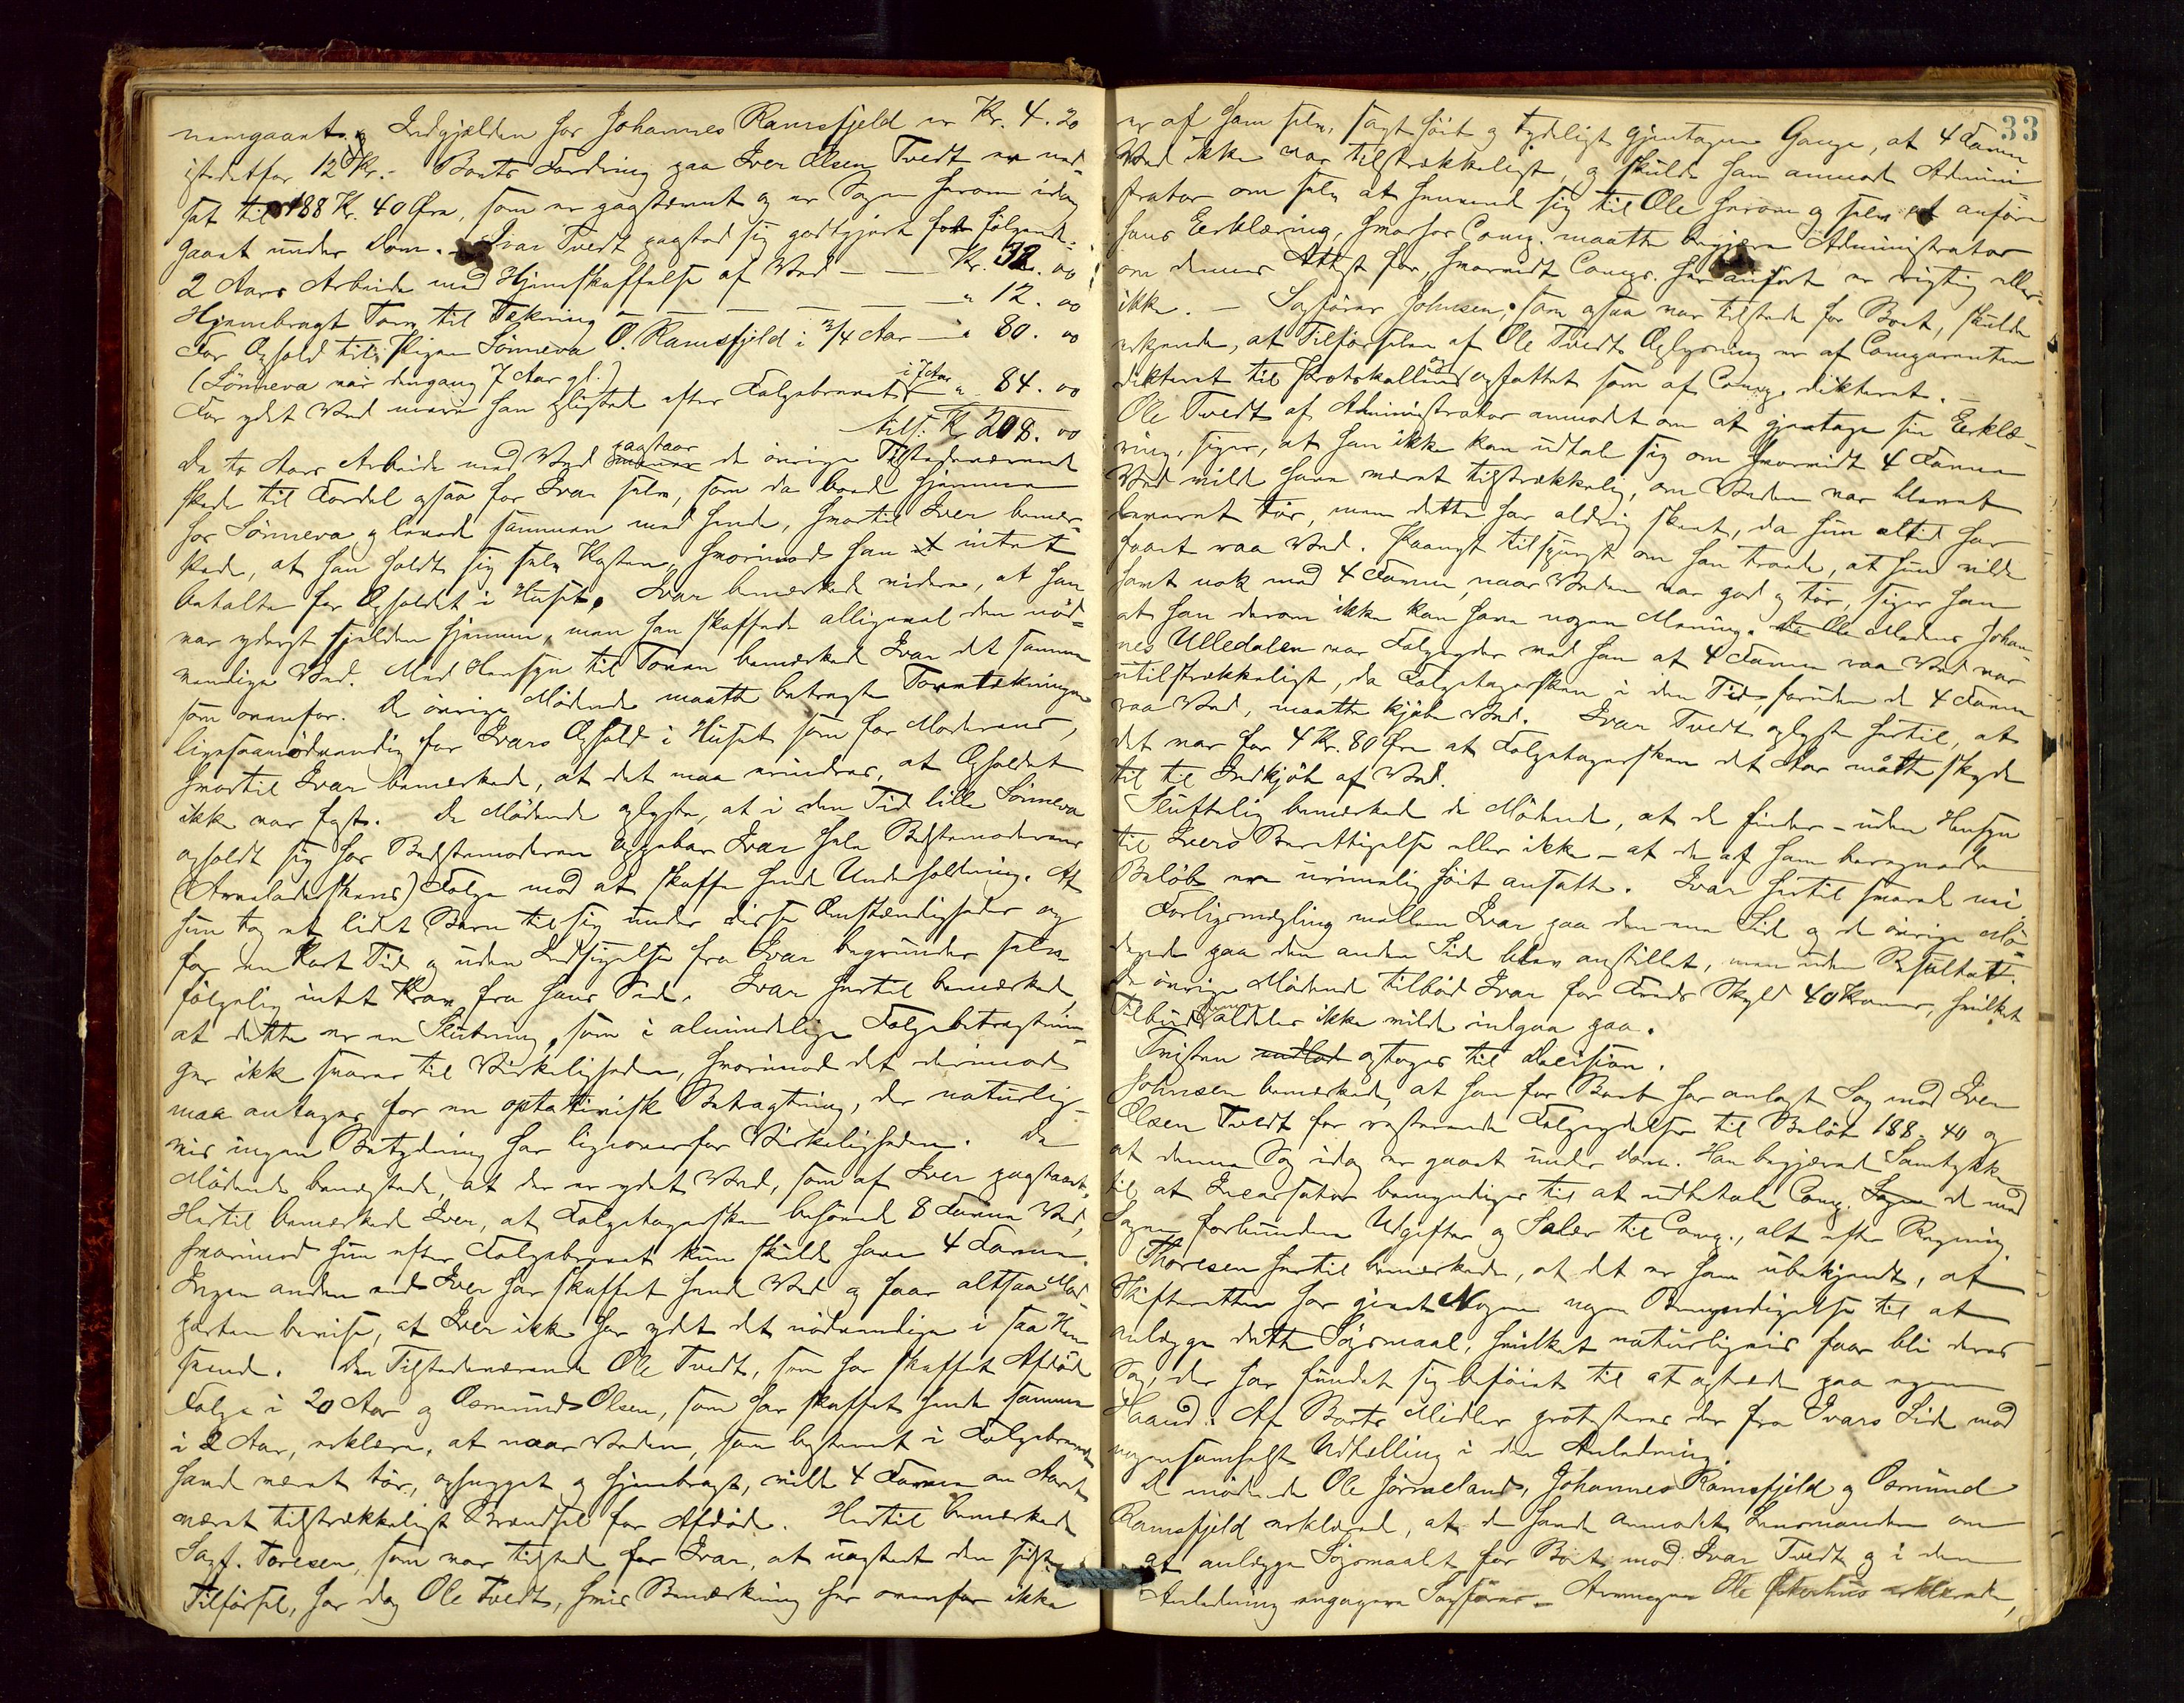 nemgaaet. Indgjælden hos Johannes Ramsfjeld er Kr. 4.20
istedetfor 12 Kr. - Boets Fordring paa Iver Olsen Tvedt er ned-
sat til 188 Kr. 40 Øre, som er paastevnt og er Sagen herom idag
gaaet under Dom. - Ivar Tvedt paastod sig godtgjort for følgende:
2 Aars Arbeide med Hjemskaffelse af Ved — — Kr. 32. 00
Hjembragt Torv til Tækning — — — — „ 12. 00
For Ophold til Pigen Sönneva O. Ramsfjeld i 3/4 Aar — „ 80. 00
(Sönneva var dengang 7 Aar gl.)
For ydet Ved mere han pligtede efter Folgebrevet i 7 Aar „ 84. 00
tils: Kr 208. 00
De to Aars Arbeide med Ved paastaar de övrige Tilstedeværende
skede til Fordel ogsaa for Ivar selv, som da boede hjemme
hos Sönneva og levede sammen med hende, hvortil Iver bemær-
kede, at han holdt sig selv Kosten, hvorimod han intet
betalte for Opholdet i Huset. Ivar bemærkede videre, at han
var yderst sjelden hjemme, men han skaffede alligevel den nöd-
vendige Ved. Med Hensyn til Torven bemærkede Ivar det samme
som ovenfor. De övrige Mödende maatte betragte Torvtækningen
ligesaa nödvendig for Ivars Ophold i Huset som for Moderens,
hvortil Ivar bemærkede, at det maa erindres, at Opholdet
ikke var fast. De Mödende oplyste, at i den Tid lille Sönneva
opholdt sig hos Bedstemoderen oppebar Ivar hele Bedstemoderens
(Arveladerskens) Folge mod at skaffe hende Underholdning. At
hun tog et lidet Barn til sig under disse Omstændigheder og
for en kort Tid og uden Indsigelse fra Ivar begrunder selv-
fölgelig intet Krav fra hans Side. Ivar hertil bemærkede,
at dette er en Slutning, som i almindelige Folgebetragtnin-
ger ikke svarer til Virkeligheden, hvorimod det derimod
maa antages for en optativisk Betragtning, der naturlig-
vis ingen Betydning har ligeoverfor Virkeligheden. De
Mödende benegtede, at der er ydet Ved, som af Iver paastaaet,
Hertil bemærkede Iver, at Folgetagersken behövede 8 Favne Ved,
hvorimod hun efter Folgebrevet kun skulde have 4 Favne.
Ingen anden end Iver har skaffet hende Ved og faar altsaa Mod-
parten bevise, at Iver ikke har ydet det nödvendige i saa Hen-
seende. Den Tilstedeværende Ole Tvedt, som har skaffet Afdöde
Folge i 20 Aar og Osmund Olsen, som har skaffet hende samme
i 2 Aar, erklærer, at naar Veden, som bestemt i Folgebrevet
havde været tör, ophugget og hjembragt, vilde 4 Favne om Aaret
været tilstrækkeligt Brændsel for Afdöde. Hertil bemærkede
Sagf. Toresen, som var tilstede for Ivar, at uagtet den sidste
Tilförsel, har dog Ole Tvedt, hvis Bemærkning her ovenfor ikke
33
er af ham selv, sagt höit og tydeligt gjentagne Gange, at 4 Favne
Ved ikke var tilstrækkeligt, og skulde han anmode Admini-
strator om selv at henvende sig til Ole herom og selv at anföre
hans Erklæring, hvorfor Comp. maatte begjære Administrator
om dennes Attest for, hvorvidt Comps. her anfört er rigtig eller
ikke. — Sagförer Johnsen, som ogsaa var tilstede for Boet, skulde
erkjende, at Tilförselen af Ole Tvedts Oplysning er af Comparenten
dikteret til Protokollen og opfattet som af Comp. dikteret. —
Ole Tvedt af Administrator anmodet om at gjentage sin Erklæ-
ring, siger, at han ikke kan udtale sig om hvorvidt 4 Favne
Ved vilde have været tilstrækkelig, om Veden var blevet
leveret tör, men dette har aldrig skeet, da hun altid har
faaet raa Ved. Paanyt tilspurgt om han troede, at hun vilde
havt nok med 4 Favne, naar Veden var god og tör, siger han
at han derom ikke kan have nogen Mening. Ole Madens Johan-
nes Ulledalen var Folgeyder ved ham at 4 Favne raa Ved var
utilstrækkeligt, da Folgetagersken i den Tid, foruden de 4 Favne
raa Ved, maatte kjöbe Ved. Ivar Tvedt oplyste hertil, at
det var for 4 Kr. 80 Øre at Folgetagersken det Aar måtte skyde
til til Indkjöb af Ved.
Sluttelig bemærkede de Mödende, at de finder - uden Hensyn
til Ivers Berettigelse eller ikke - at de af ham beregnede
Belöb er urimelig höit ansatte. Ivar hertil svarede nei
Forligsmægling mellem Ivar paa den ene Side og de övrige Mö-
dende paa den anden Side blev anstillet, men uden Resultat.
De övrige Mödende tilböd Ivar for Freds Skyld 40 Kroner, hvilket
Tilbud denne aldeles ikke vilde indgaa paa.
Tvisten optages til Decision.
Johnsen bemærkede, at han for Boet har anlagt Sag mod Iver
Olsen Tvedt for resterende Folgeydelser til Belöb 188,40 og
at denne Sag idag er gaaet under Dom. Han begjærede Samtykke
til at Incassator bemyndiges til at udbetale Comp. de med
Sagen forbundne Udgifter og Salær til Comp., alt efter Regning.
Thoresen hertil bemærkede, at det er ham ubekjendt, at
Skifteretten har givet Nogen nogen Bemyndigelse til at
anlægge dette Søgsmaal, hvilket naturligvis faar bli deres
Sag, der har fundet sig beföiet til at optræde paa egen
Haand. Af Boets Midler protesteres der fra Ivars Side mod
nogensomhelst Udtælling i den Anledning.
De mödende Ole Jörmeland, Johannes Ramsfjeld og Osmund
Ramsfjeld erklærede, at de havde anmodet Lensmanden om
at anlægge Søgsmaalet for Boet mod Ivar Tvedt og i den
Anledning engagere Sagförer. Ole erklærede,